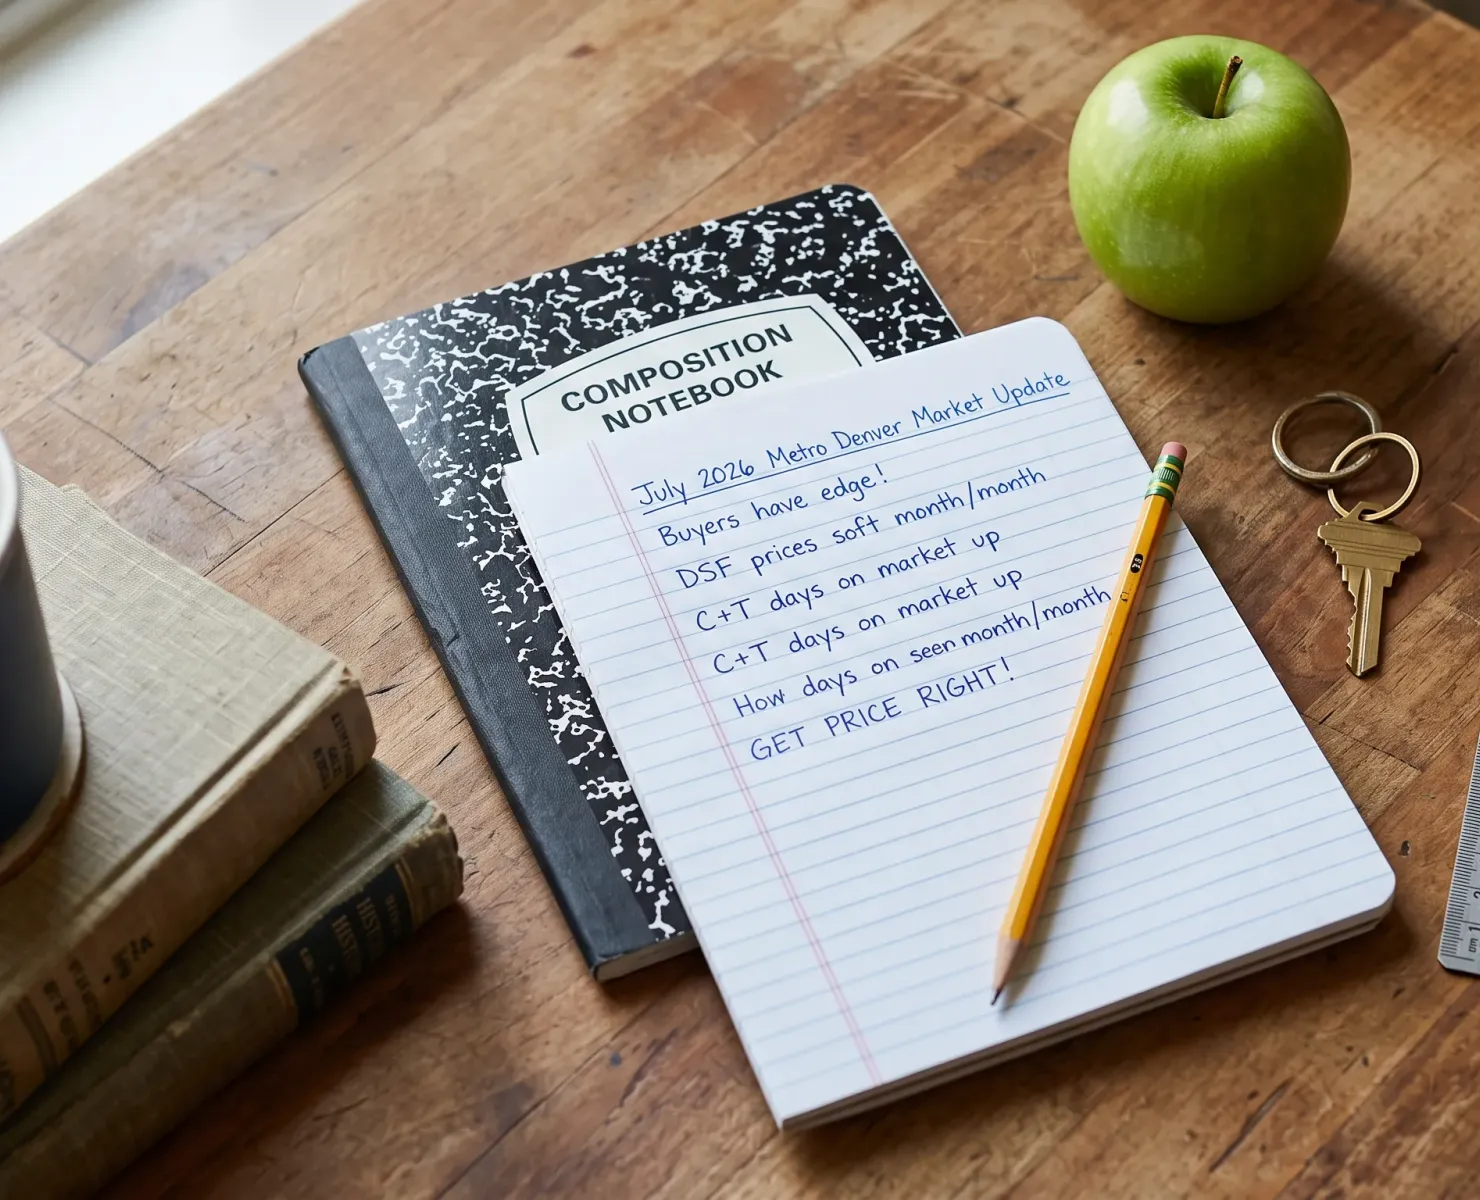 COMPOSITION
NOTEBOOK
July 2026 Metro Denver Market Update
Buyers have edge!
DSF prices soft month/month
C+T days on market up
C+T days on market up
How days on seen month/month
GET PRICE RIGHT!